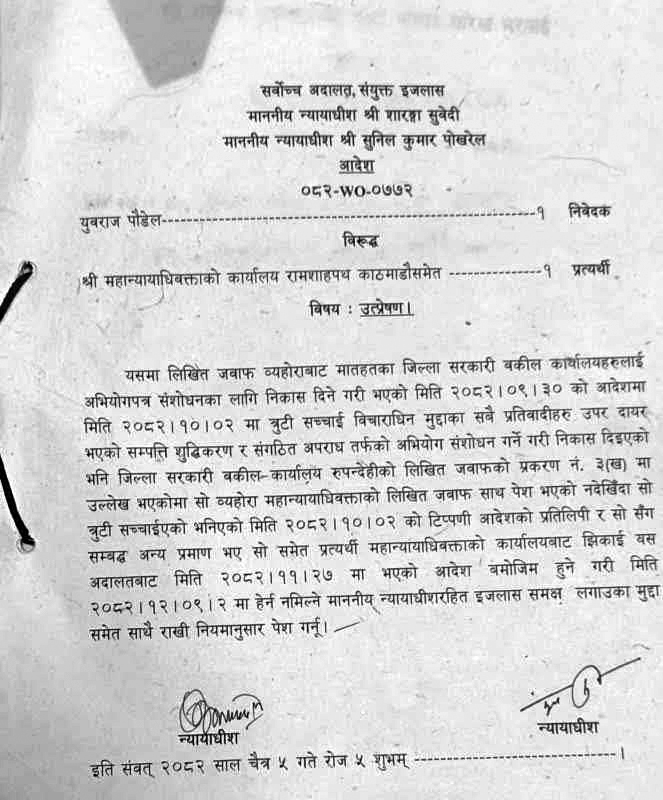 सर्वोच्च अदालत, संयुक्त इजलास
माननीय न्यायाधीश श्री शारङ्गा सुवेदी
माननीय न्यायाधीश श्री सुनिल कुमार पोखरेल
आदेश
०८२-WO-०७७२
युवराज पौडेल------------------------------------------------------१ निवेदक
विरूद्ध
श्री महान्यायाधिवक्ताको कार्यालय रामशाहपथ काठमाडौसमेत --------------१ प्रत्यर्थी
विषय : उत्प्रेषण।
यसमा लिखित जवाफ व्यहोराबाट मातहतका जिल्ला सरकारी वकील कार्यालयहरुलाई
अभियोगपत्र संशोधनका लागि निकास दिने गरी भएको मिति २०८२।०९।३० को आदेशमा
मिति २०८२।१०।०२ मा त्रुटी सच्चाई विचाराधिन मुद्दाका सवै प्रतिवादीहरु उपर दायर
भएको सम्पत्ति शुद्धिकरण र संगठित अपराध तर्फको अभियोग संशोधन गर्ने गरी निकास दिइएको
भनि जिल्ला सरकारी वकील-कार्यालय रुपन्देहीको लिखित जवाफको प्रकरण नं. ३(ख) मा
उल्लेख भएकोमा सो व्यहोरा महान्यायाधिवक्ताको लिखित जवाफ साथ पेश भएको नदेखिँदा सो
त्रुटी सच्चाईएको भनिएको मिति २०८२।१०।०२ को टिप्पणी आदेशको प्रतिलिपी र सो सँग
सम्बद्ध अन्य प्रमाण भए सो समेत प्रत्यर्थी महान्यायाधिवक्ताको कार्यालयबाट झिकाई यस
अदालतबाट मिति २०८२।११।२७ मा भएको आदेश बमोजिम हुने गरी मिति
२०८२।१२।०९।२ मा हेर्न नमिल्ने माननीय न्यायाधीशरहित इजलास समक्ष लगाउका मुद्दा
समेत साथै राखी नियमानुसार पेश गर्नू।
न्यायाधीश
न्यायाधीश
इति संवत् २०८२ साल चैत्र ५ गते रोज ५ शुभम् -----------------------------।